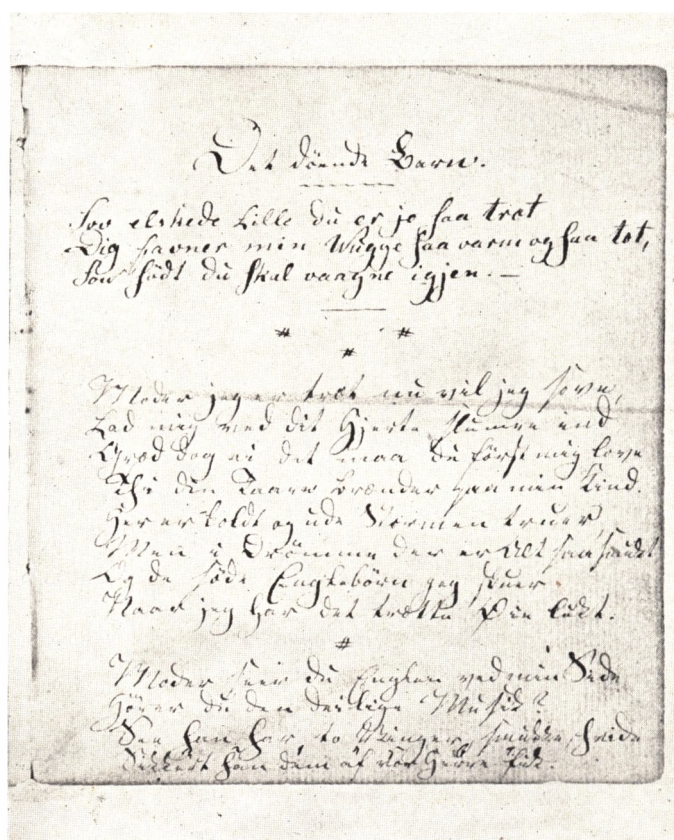 Det døende Barn.
Sov elskede Lille du er jo saa træt
Dig savner min Vugge saa varm og saa tæt,
Snart sødt du skal vaagne igjen. —
# #
#
Moder jeg er træt nu vil jeg sove,
Lad mig ved dit Hjerte slumre ind
Græd dog ei det maa du først mig love
Thi din Taare brænder paa min Kind.
Her er koldt og ude Stormen truer
Men i Drømme der er Alt saa smukt
Og de søde Englebørn jeg skuer
Naar jeg har det trætte Øie lukt.
#
Moder seer du Englen ved min Side
Hører du den deilige Musik?
See han har to Vinger smukke hvide
Sikkert han dem af vor Herre fik.